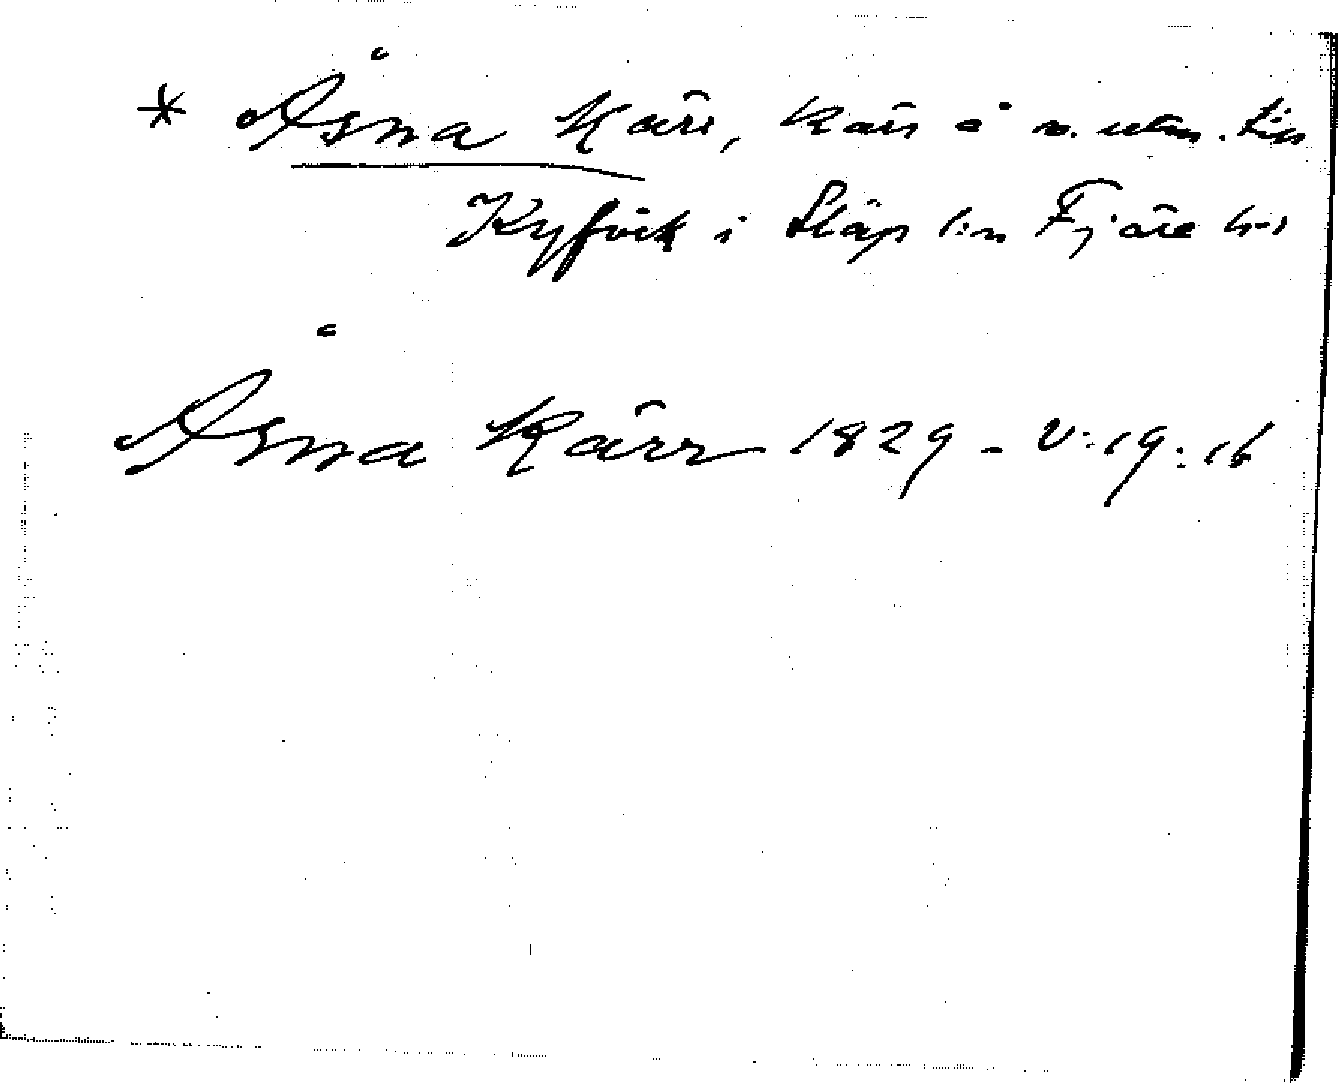 * Åsna Kärr, Kärr å n. utm. till
Kyfvik i Släp sn Fjäre hd
Åsna Kärr 1829 - V:19:16